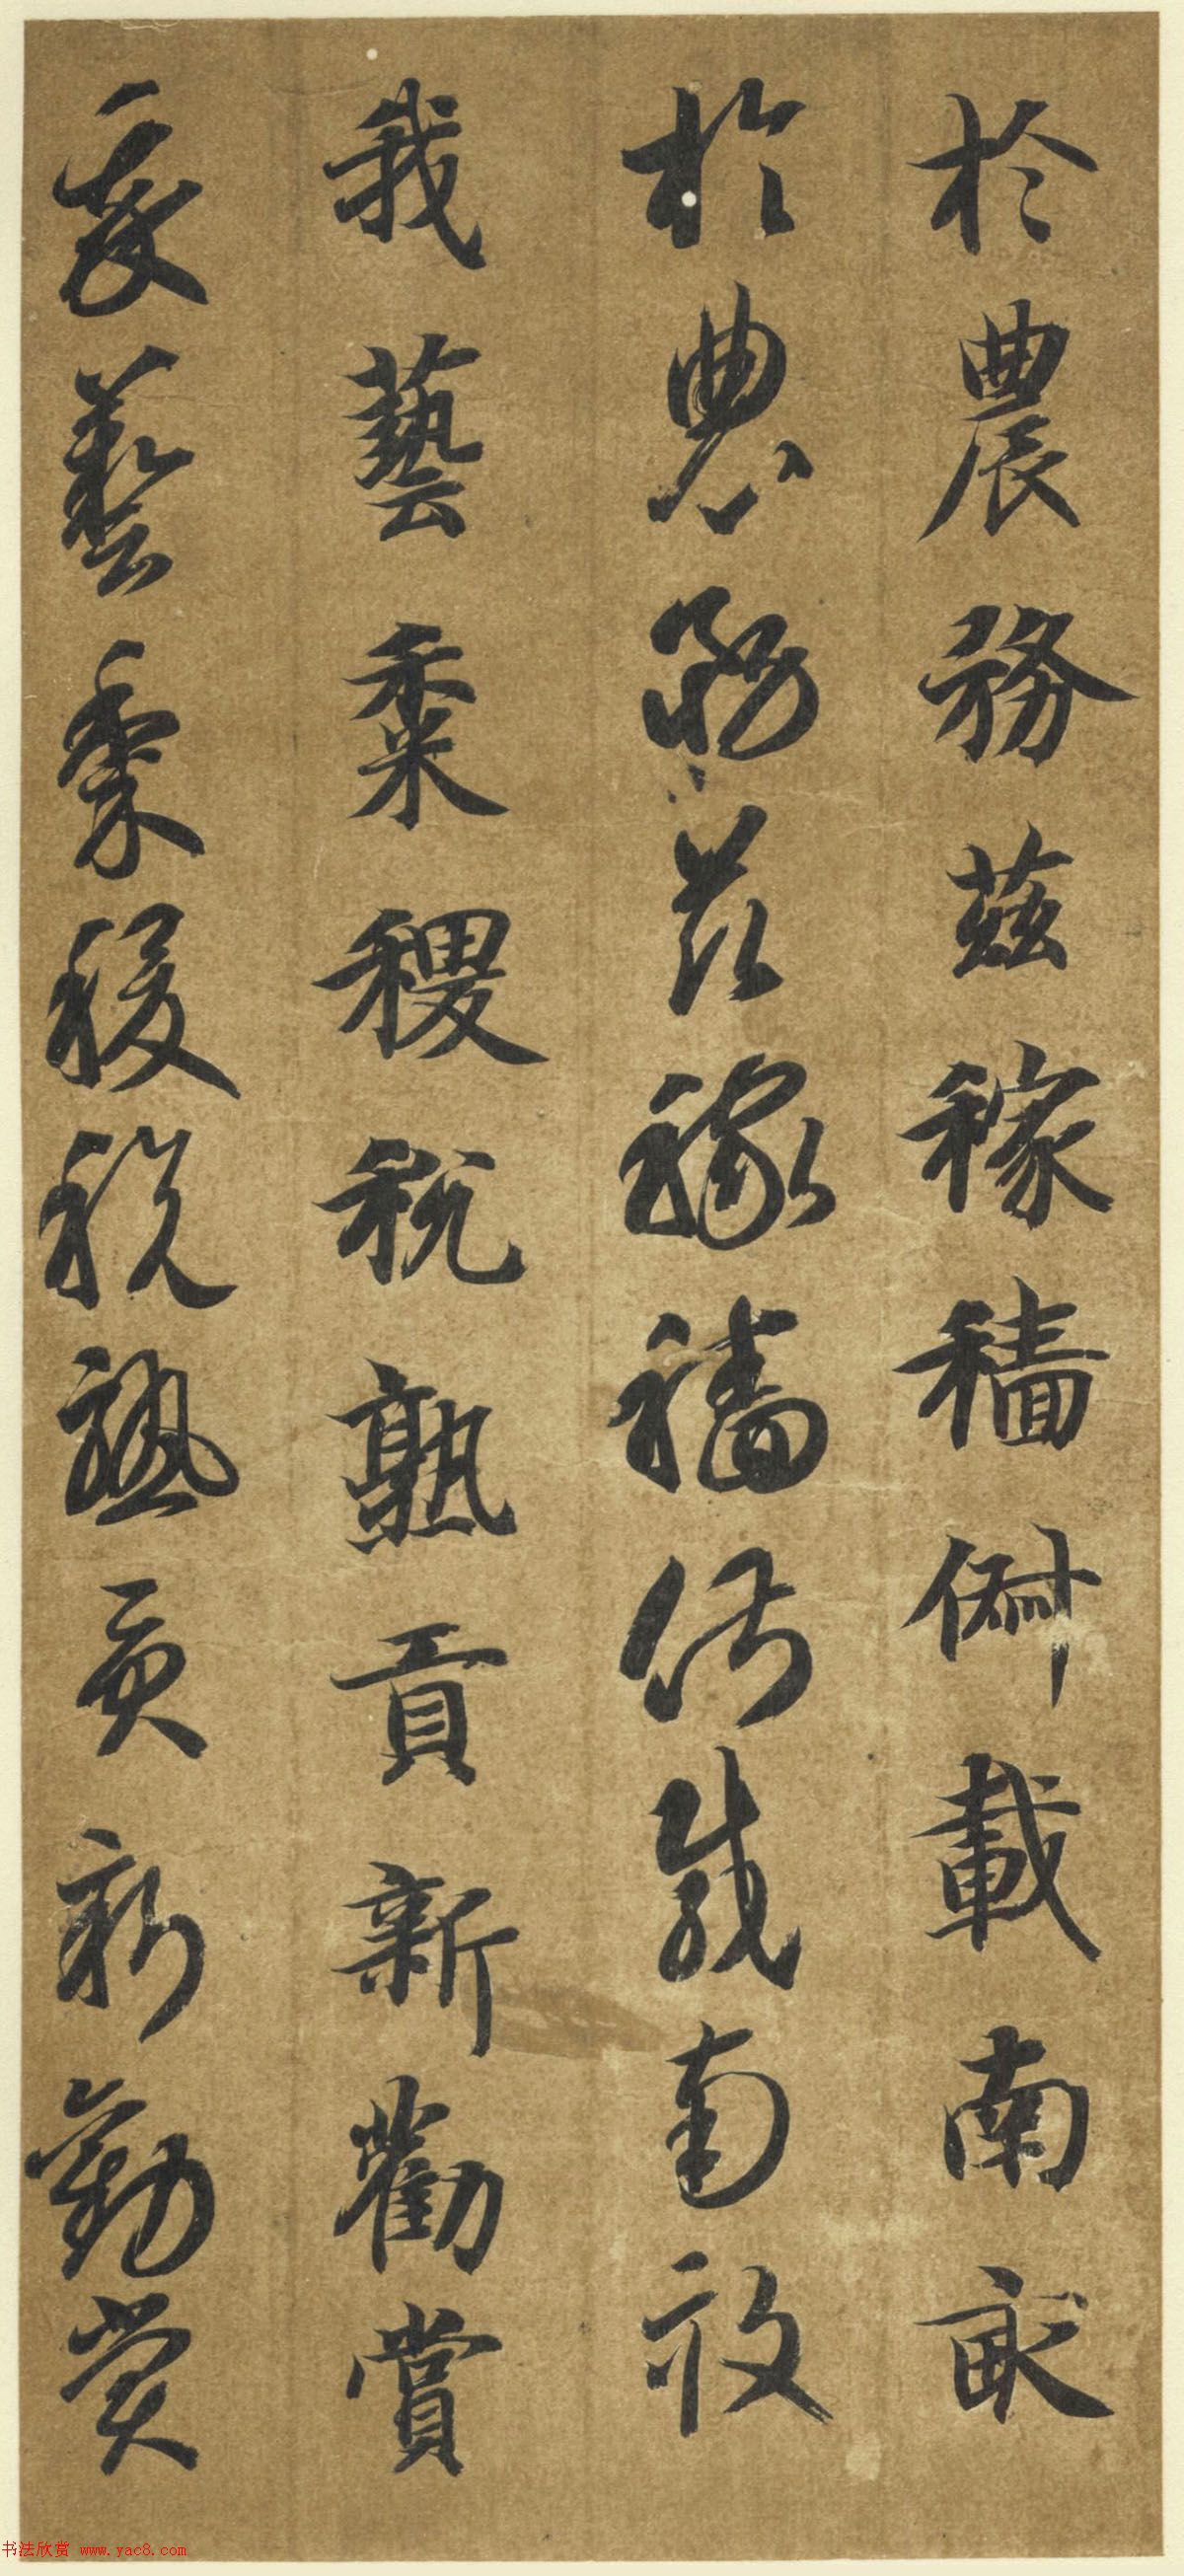 於農務茲稼穡俶載南畝
於農務茲稼穡俶載南畝
我藝黍稷稅熟貢新勸賞
我藝黍稷稅熟貢新勸賞
书法欣赏 www.yac8.com